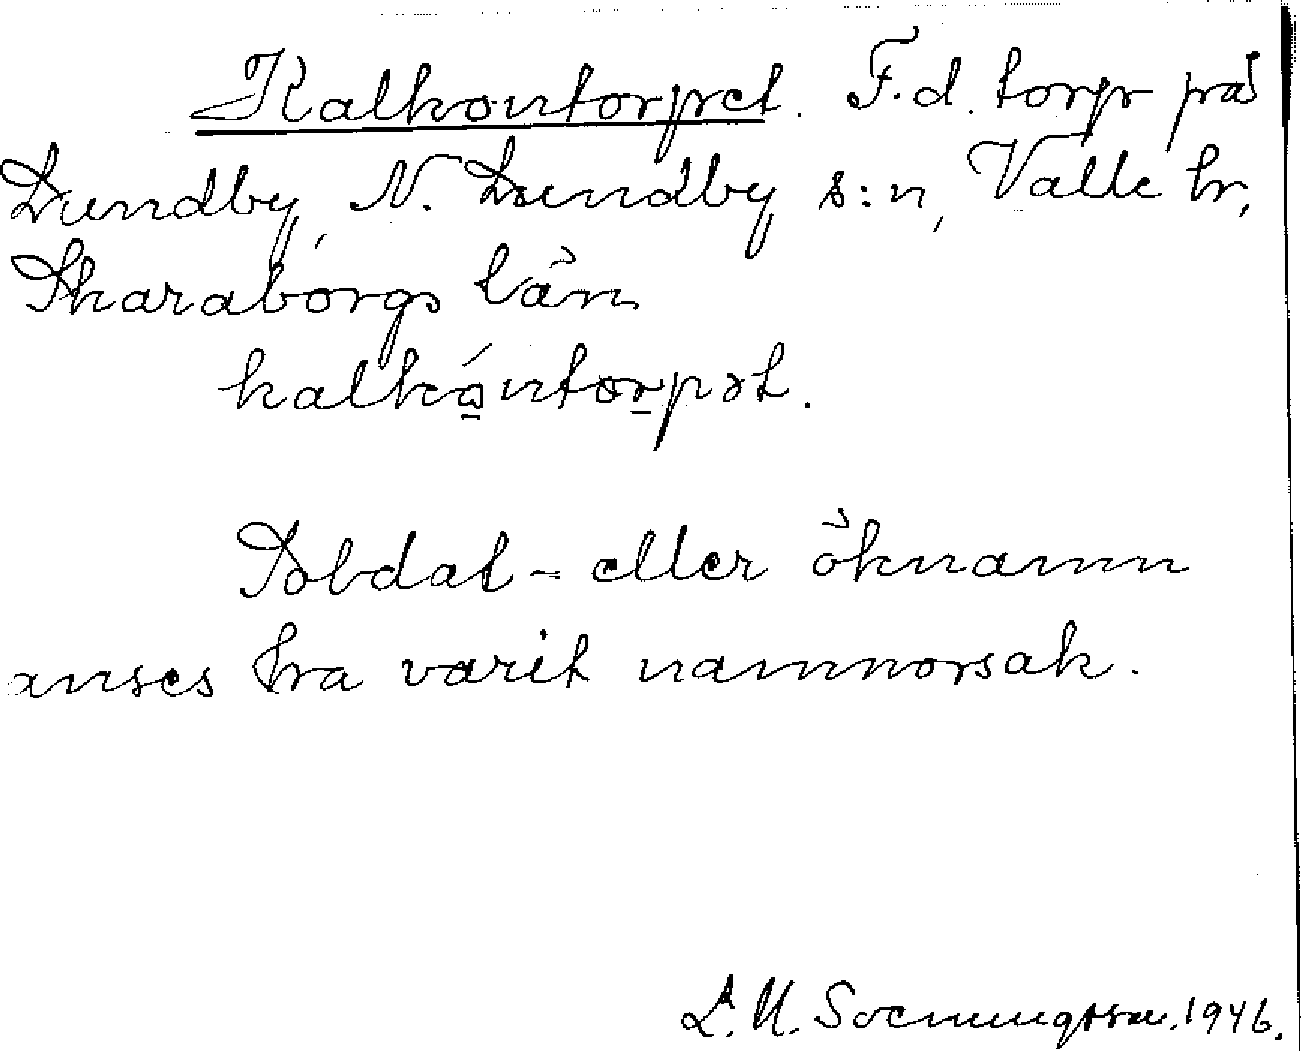 Kalkontorpet. F.d. torp på
Lundby, N. Lundby s:n, Valle hr,
Skaraborgs län
kalkó̲ntor̲pət.
Soldat- eller öknamn
anses ha varit namnorsak.
L. M. Svenungsson. 1946.